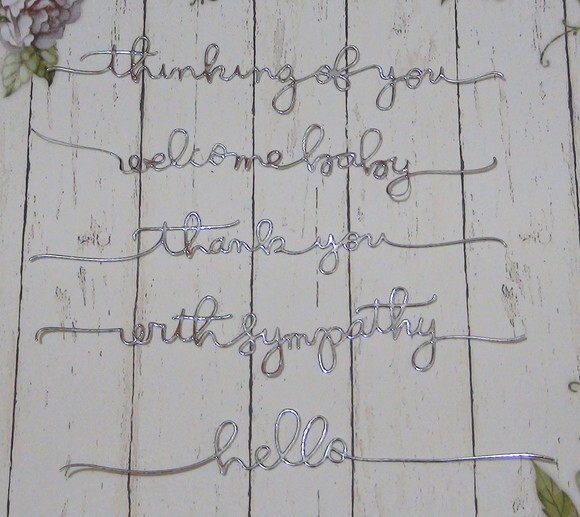 thinking of you
welcome baby
thank you
with sympathy
hello